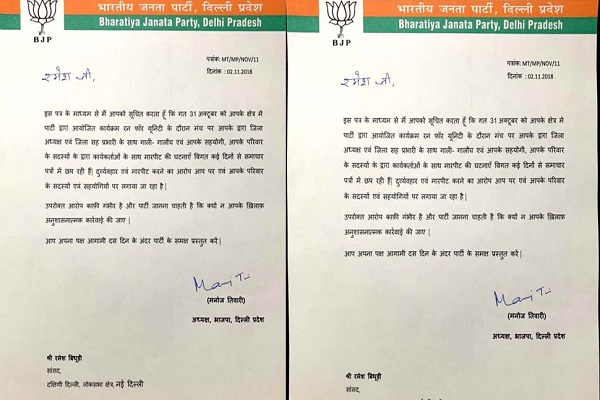 भारतीय जनता पार्टी, दिल्ली प्रदेश
Bharatiya Janata Party, Delhi Pradesh
BJP
पत्रांक: MT/MP/NOV/11
दिनांक : 02.11.2018
रमेश जी,
इस पत्र के माध्यम से मैं आपको सूचित करता हूँ कि गत 31 अक्टूबर को आपके क्षेत्र मे
पार्टी द्वारा आयोजित कार्यक्रम रन फॉर यूनिटी के दौरान मंच पर आपके द्वारा जिला
अध्यक्ष एवं जिला सह प्रभारी के साथ गाली- गालौच एवं आपके सहयोगी, आपके परिवार
के सदस्यों के द्वारा कार्यकर्ताओं के साथ मारपीट की घटनाएँ विगत कई दिनों से समाचार
पत्रों में छप रही हैं| दुर्व्यवहार एवं मारपीट करने का आरोप आप पर एवं आपके परिवार
के सदस्यों एवं सहयोगियों पर लगाया जा रहा है|
उपरोक्त आरोप काफी गंभीर है और पार्टी जानना चाहती है कि क्यों न आपके ख़िलाफ़
अनुशासनात्मक कार्रवाई की जाए |
आप अपना पक्ष आगामी दस दिन के अंदर पार्टी के समक्ष प्रस्तुत करे|
(मनोज तिवारी)
अध्यक्ष, भाजपा, दिल्ली प्रदेश
श्री रमेश बिधूड़ी
सांसद,
दक्षिणी दिल्ली, लोकसभा क्षेत्र, नई दिल्ली
भारतीय जनता पार्टी, दिल्ली प्रदेश
Bharatiya Janata Party, Delhi Pradesh
BJP
पत्रांक: MT/MP/NOV/11
दिनांक : 02.11.2018
रमेश जी,
इस पत्र के माध्यम से मैं आपको सूचित करता हूँ कि गत 31 अक्टूबर को आपके क्षेत्र मे
पार्टी द्वारा आयोजित कार्यक्रम रन फॉर यूनिटी के दौरान मंच पर आपके द्वारा जिला
अध्यक्ष एवं जिला सह प्रभारी के साथ गाली- गालौच एवं आपके सहयोगी, आपके परिवार
के सदस्यों के द्वारा कार्यकर्ताओं के साथ मारपीट की घटनाएँ विगत कई दिनों से समाचार
पत्रों में छप रही हैं| दुर्व्यवहार एवं मारपीट करने का आरोप आप पर एवं आपके परिवार
के सदस्यों एवं सहयोगियों पर लगाया जा रहा है|
उपरोक्त आरोप काफी गंभीर है और पार्टी जानना चाहती है कि क्यों न आपके ख़िलाफ़
अनुशासनात्मक कार्रवाई की जाए |
आप अपना पक्ष आगामी दस दिन के अंदर पार्टी के समक्ष प्रस्तुत करे|
(मनोज तिवारी)
अध्यक्ष, भाजपा, दिल्ली प्रदेश
श्री रमेश बिधूड़ी
सांसद,